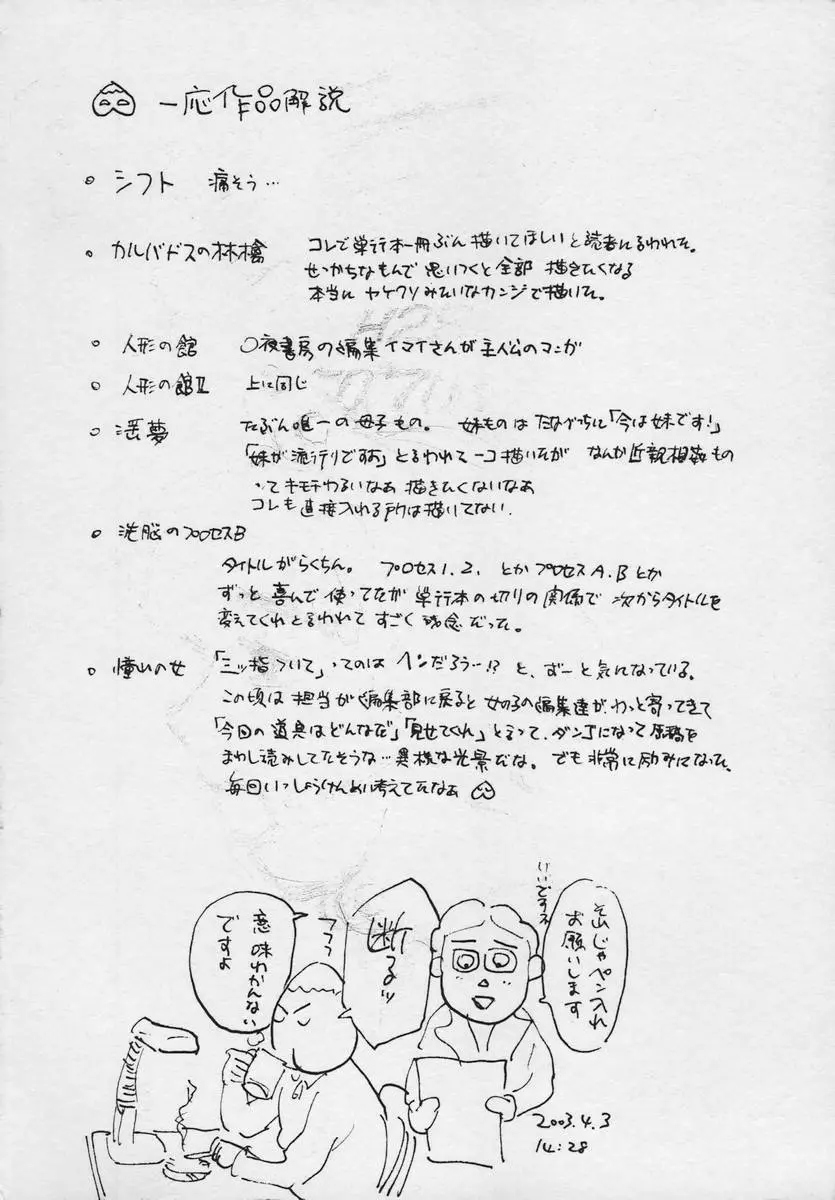 一応作品解説
シフト 痛そう…
カルバドスの林檎 コレで単行本一冊ぶん描いてほしいと読者に言われた。
せっかちなもんで思いつくと全部描きたくなる
本当にヤケクソみたいなカンジで描いた。
人形の館 〇夜書房の編集イマイさんが主人公のマンガ
人形の館Ⅱ 上に同じ
淫夢 たぶん唯一の母子もの。妹ものは「今は妹です!」
「妹が流行りですよ」と言われて一コ描いたが なんか近親相姦もの
ってキモチわるいなぁ 描きたくないなぁ
コレも直接入れる所は描いてない.
洗脳のプロセスB
タイトルがらくちん。 プロセス1.2. とかプロセスA.Bとか
ずっと喜んで使ってたが単行本の切りの関係で次からタイトルを
変えてくれと言われてすごく残念だった。
憧れの女 「三ッ指ついて」ってのはヘンだろうー!?と、ずーと気になっている。
この頃は担当が編集部に戻ると女の子の編集達が、わっと寄ってきて
「今回の道具はどんなだ」「見せてくれ」と言って、ダンゴになって原稿を
まわし読みしてたそうな…異様な光景だな。でも非常に励みになった。
毎回いっしょうけんめい考えてたなぁ
じゃペン入れ
お願いします
断るッ
フフフ
意味わかんない
ですよ
2003.4.3
14:28